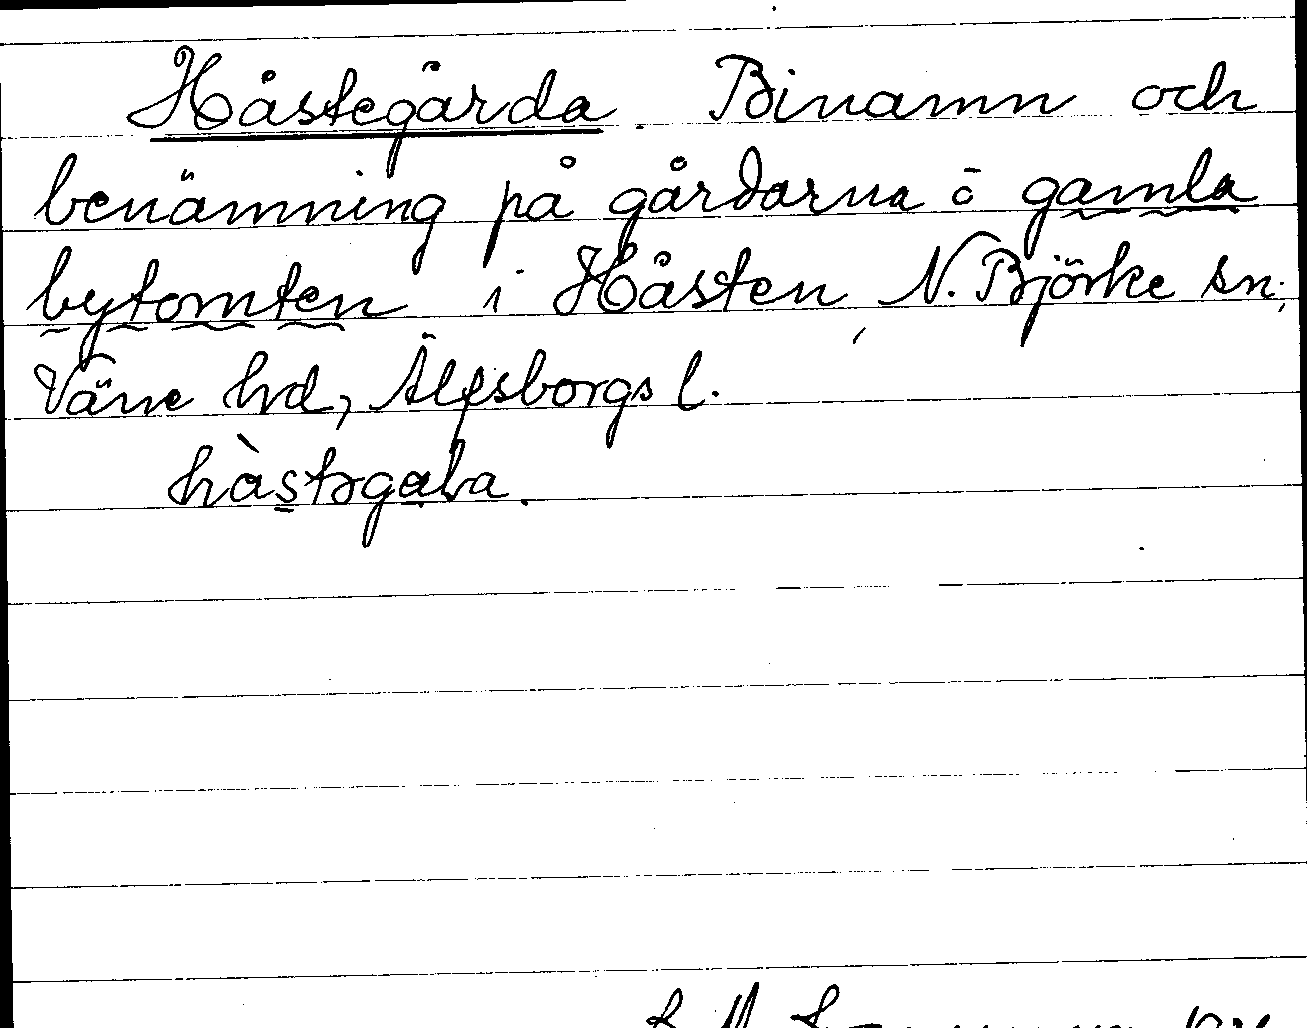 Håstegårda. Binamn och
benämning på gårdarna å gamla
bytomten i Håsten, N. Björke sn;
Väne hd, Älfsborgs l.